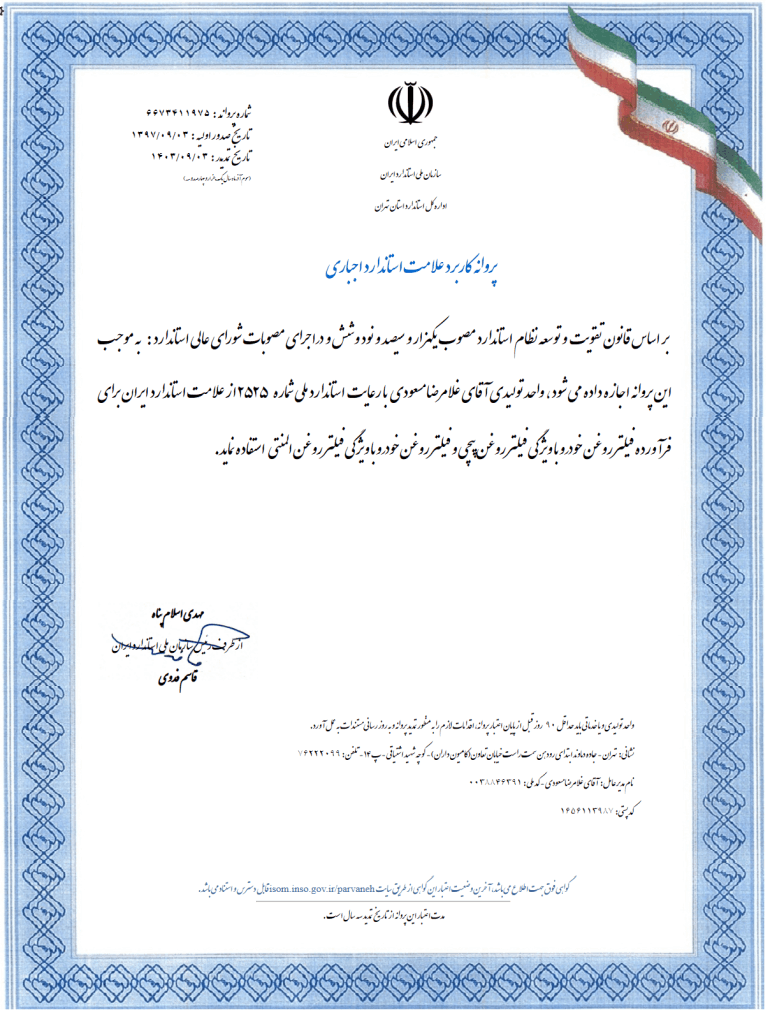 جمهوری اسلامی ایران
سازمان ملی استاندارد ایران
اداره کل استاندارد استان تهران
شماره پروانه : ۶۶۷۳۴۱۱۹۷۵
تاریخ صدور اولیه : ۱۳۹۷/۰۹/۰۳
تاریخ تمدید : ۱۴۰۳/۰۹/۰۳
(سوم آذر ماه سال یکهزار و چهارصد و سه)
پروانه کاربرد علامت استاندارد اجباری
بر اساس قانون تقویت و توسعه نظام استاندارد مصوب یکهزار و سیصد و نود و شش و در اجرای مصوبات شورای عالی استاندارد : به موجب
این پروانه اجازه داده می شود ، واحد تولیدی آقای غلامرضا مسعودی با رعایت استاندارد ملی شماره ۲۵۲۵ از علامت استاندارد ایران برای
فرآورده فیلتر روغن خودرو با ویژگی فیلتر روغن پیچی و فیلتر روغن خودرو با ویژگی فیلتر روغن المنتی استفاده نماید.
مهدی اسلام پناه
از طرف رئیس سازمان ملی استاندارد ایران
قاسم فدوی
واحد تولیدی و یا خدماتی باید حداقل ۹۰ روز قبل از پایان اعتبار پروانه، اقدامات لازم را به منظور تمدید پروانه و به روز رسانی مستندات به عمل آورد.
نشانی: تهران - جاده دماوند ابتدای رودهن سمت راست خیابان تعاون (کامیون داران) - کوچه شهید اشتیاقی - پ ۱۴ - تلفن: ۷۶۲۲۲۰۹۹
نام مدیر عامل: آقای غلامرضا مسعودی - کد ملی: ۰۰۳۸۸۴۶۳۹۱
کد پستی: ۱۶۵۶۱۱۳۹۸۷
گواهی فوق جهت اطلاع می باشد، آخرین وضعیت اعتبار این گواهی از طریق سایت isom.inso.gov.ir/parvaneh قابل دسترس و استناد می باشد.
مدت اعتبار این پروانه از تاریخ تمدید سه سال است.